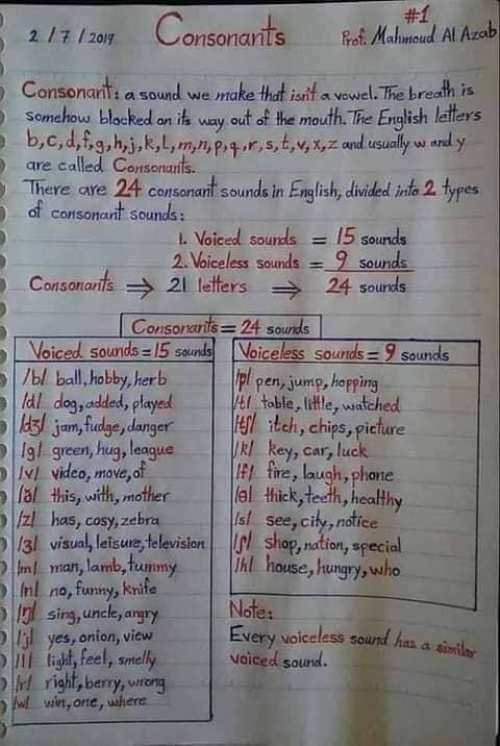 #1
2/7/2019 Consonants Prof. Mahmoud Al Azab
Consonant: a sound we make that isn't a vowel. The breath is
somehow blocked on its way out of the mouth. The English letters
b, c, d, f, g, h, j, k, l, m, n, p, q, r, s, t, v, x, z and usually w and y
are called Consonants.
There are 24 consonant sounds in English, divided into 2 types
of consonant sounds:
1. Voiced sounds = 15 sounds
2. Voiceless sounds = 9 sounds
Consonants ⇒ 21 letters ⇒ 24 sounds
Consonants = 24 sounds
Voiced sounds = 15 sounds
/b/ ball, hobby, herb
/d/ dog, added, played
/dʒ/ jam, fudge, danger
/g/ green, hug, league
/v/ video, move, of
/ð/ this, with, mother
/z/ has, cosy, zebra
/ʒ/ visual, leisure, television
/m/ man, lamb, tummy
/n/ no, funny, knife
/ŋ/ sing, uncle, angry
/j/ yes, onion, view
/l/ light, feel, smelly
/r/ right, berry, wrong
/w/ win, one, where
Voiceless sounds = 9 sounds
/p/ pen, jump, hopping
/t/ table, little, watched
/tʃ/ itch, chips, picture
/k/ key, car, luck
/f/ fire, laugh, phone
/θ/ thick, teeth, healthy
/s/ see, city, notice
/ʃ/ shop, nation, special
/h/ house, hungry, who
Note:
Every voiceless sound has a similar
voiced sound.